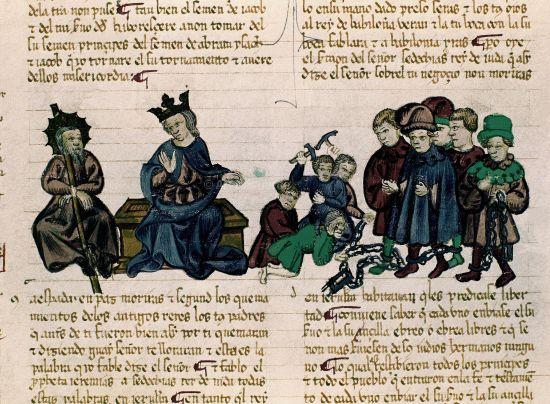 de la tra non puse ¶ Tan bien el semen de iacob
& del mi sieruo dd haborresçere a non tomar del
su semen prinçipes del semen de abram ysaac
& iacob q̃ yo tornare el su tornamiento & auere
dellos misericordia: ¶
en su mano dado seras & los tꝯ oios
al rey de babiloña veran & la tu boca con la su
boca fablara & a babilonia yras ¶ Po oye
el sermon del señor sedechias rey de iuda q̃ asi
dize el señor sobre l tu negoçio non moriras
a espada/ en paz moriras & segund los quema
mientos de los antigos reyes los tꝯ padres
q̃ ants de ti fueron bien asi por ti quemaran
& diziendo guay señor te lloraran & esta es la
palabra q̃ yo fable dize el señor ¶ & fablo el
ppheta ieremias a sedechias rey de iuda todas
estas palabras en jerusalem ¶ En tanto q̃l rey
en jerusalem habitauan q̃les predicase liber
tad ¶ Conuiene saber q̃ cada vno enbiase el su
sieruo & la su ançilla ebreo & ebrea libres & q̃ se
non mas siruiesen de los judios hermanos ningu
no ¶ Lo qual resçibieron todos los prinçipes
& todo el pueblo q̃ entraron en la fe & testamẽ
to de cada vno enbiar el su sieruo & la su ançilla